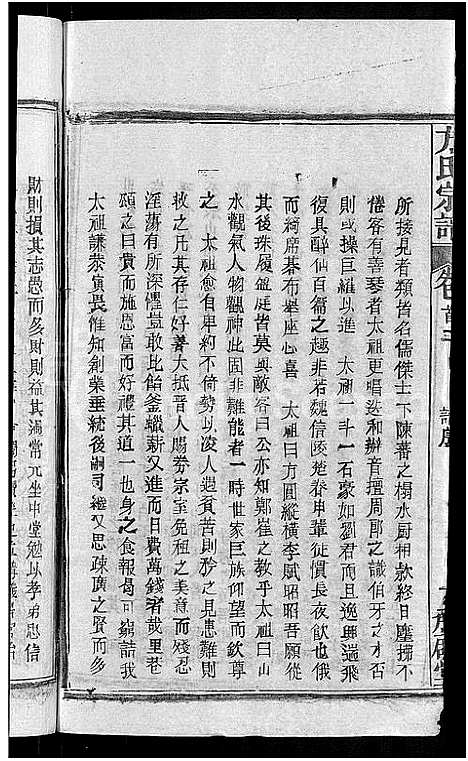 方氏宗譜
所接見者類皆名儒傑士下陳蕃之榻水厨相款終日塵揮不
倦客有善琴者太祖更唱迭和辦音擅周郎之識伯牙之才否
則或操巨羅以進　太祖一斗一石豪如劉君而且逸興遄飛
復具醉仙百篇之趣非若魏信陵楚春申輩徒慣長夜飲也俄
而綺席碁布舉盞言喜　太祖曰方圓縱橫李賦昭昭吾願從
其後珠履盈庭皆莫與敵客曰公亦知鄭崔之教乎太祖曰山
水觀氣人物觀神此固非難能者一時世家巨族仰望而欽尊
之　太祖愈自卑約不倚勢以凌人遇貧苦則矜之見患難則
救之凡其存仁好善大抵晋人賜劵宗室免租之美意而殘忍
淫蕩有所深懼豈敢比飴釜蠟薪又進而日費萬錢者哉里巷
頌之曰實大而施恩富而好禮其道一也身之食報曷可窮詰我
太祖謙恭寅畏惟知創業垂統後嗣司繼又思疎廣之賢而多
財則損其志愚而多財則益其過常兀坐中堂勉以孝弟忠信